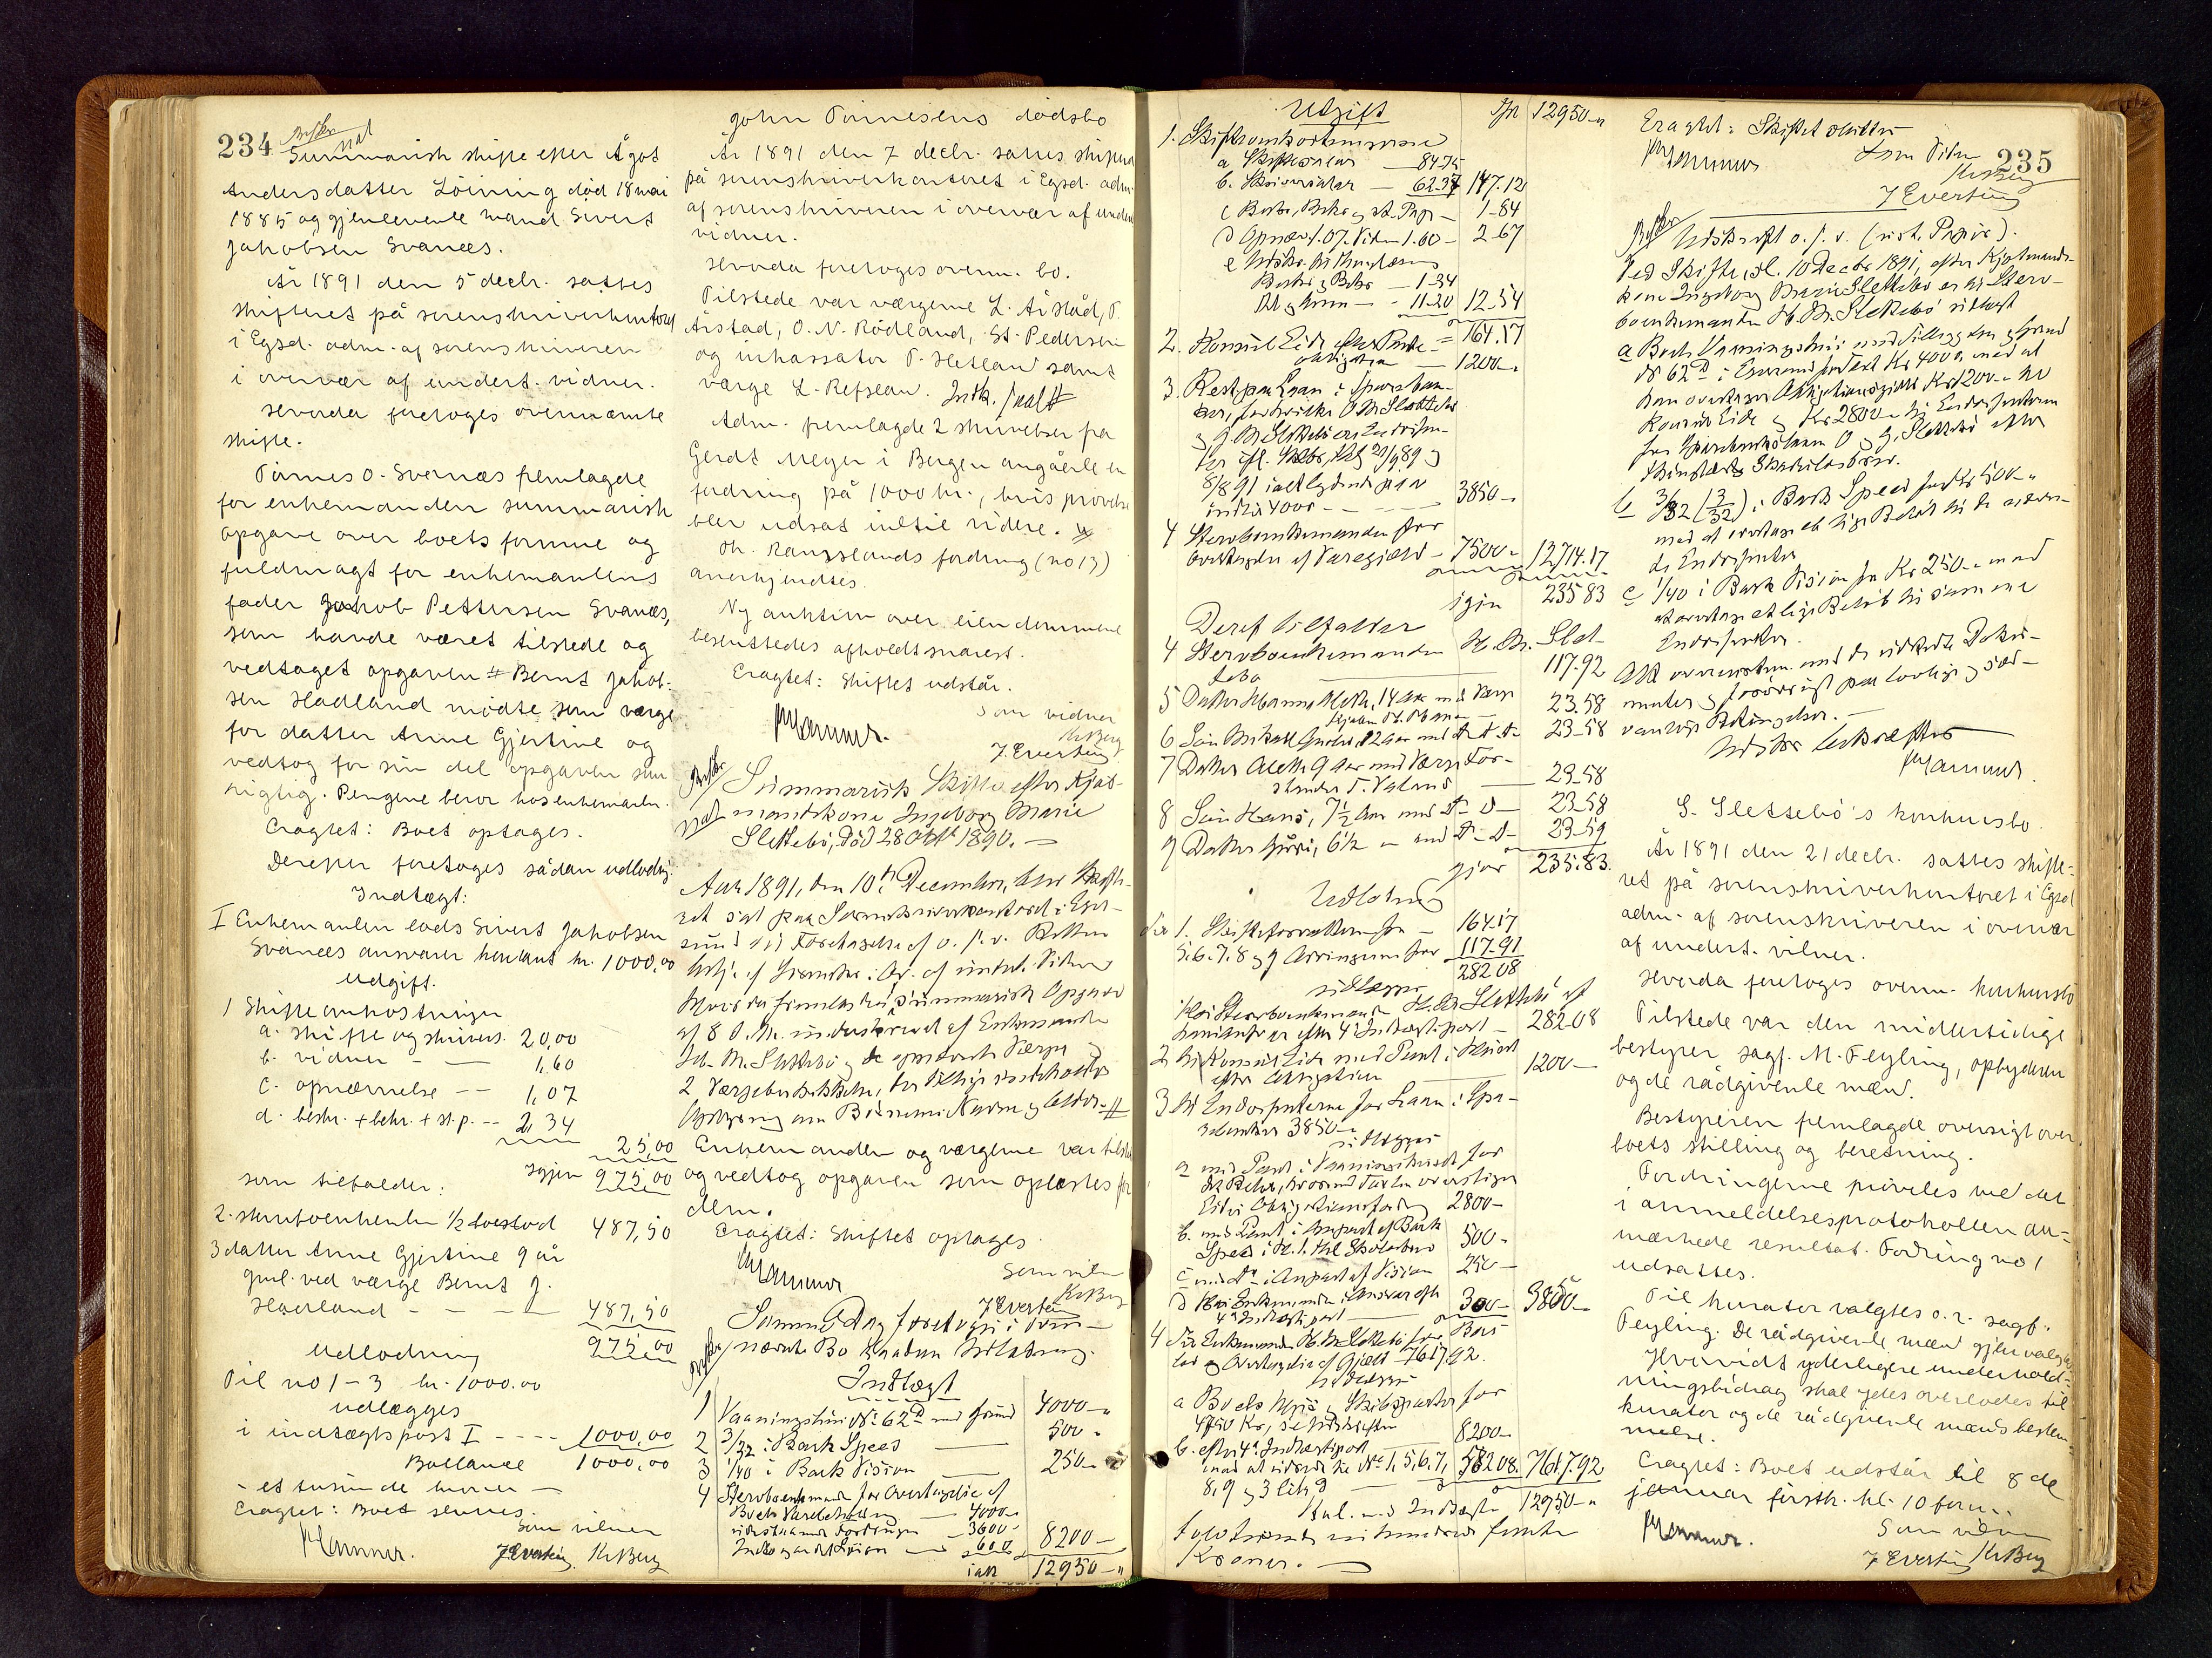 234
Summarisk skifte efter Ågot
Andersdatter Löining död 18 mai
1885 og gjenlevende mand Sivert
Jakobsen Svanæs.
År 1891 den 5 decbr. sattes
skifteret på sorenskriverkontoret
i Egsd. adm. af sorenskriveren
i overvær af undert. vidner.
Hvorda foretoges ovennævnte
skifte.
Tönnes O. Svanæs fremlagde
for enkemanden summarisk
opgave over boets formue og
fuldmagt for enkemandens
fader Jakob Pettersen Svanæs,
som havde været tilstede og
vedtaget opgaven # Bernt Jakob-
sen Hadland mödte som værge
for datter Anne Gjertine og
vedtog for sin del opgaven som
rigtig. Pengene beror hos enkemanden.
Eragtet: Boet optages.
Derefter foretoges sådan udlodng:
Indtægt:
I Enkemanden lods Sivert Jakobsen
Svanæs ansvarer kontant kr. 1000,00
Udgift.
1 Skifteomkostninger
a. skifte og skrivers. 20,00
b. vidner - - 1,60
c. opnævnelse - - 1,07
d. beskr. + bekr. + st.p. -- 2,34
25,00
Igjen 975,00
som tilfalder:
2. stervboenkem. 1/2 boeslod 487,50
3 datter Anne Gjertine 9 år
gml. ved værge Bernt J.
Hadland - - - 487,50
975,00
Udlodning
Til no 1-3 kr. 1000.00
udlægges
i indtægtspost I - - - - 1000,00
Ballance 1000,00
- et tusinde kroner -
Eragtet: Boet sluttes.
Som vidner
J Evertsen KrBerg
John Tönnesens dödsbo
År 1891 den 7 decbr. sattes skifteret
på sorenskriverkontoret i Egsd. adm.
af sorenskriveren i overvær af undert
vidner.
Hvorda foretoges ovenn. bo.
Tilstede var værgerne L. Årstad, T.
Årstad, O. N. Rödland, St. Pedersen
og inkassator P. Hetland samt
værge L. Refsland.
Adm. fremlagde 2 skrivelser fra
Gerdt Meyer i Bergen angående en
fordring på 1000 kr., hvis prövelse
blev udsat indtil videre. #
Th. Raugslands fordring (no 13)
anerkjendtes.
Ny auktion over eiendommene
besluttedes afholdt snarest.
Eragtet: Skiftet udstår.
Som vidner
KrBerg
J. Evertsen
Summarisk Skifte efter Kjöb-
mandskone Ingeborg Marie
Slettebö, död 28 Oktb 1890. -
Aar 1891, den 10de December, blev Skifte-
ret sat paa Sorenskriverkontoret i Eger-
sund til Foretagelse af o. f. v. Retten
betj. af Sorenskr. i Ov. af undert. Vidner
Hvorda fremlagdes summarisk Opgave
af 8 d. M. underskrevet af Enkemanden
H. M. Slettebö og de opnævnte Værger
2 Værgebeskikkelser,
Enkemanden og værgerne var tilstede
og vedtog opgaven som oplæstes for
dem.
Eragtet: Skiftet optages.
Som vidn
KrBerg
J Evertsen
Samme Dag foretoges i foran-
nævnte Bo saadan Udlodning.
Indtægt
1 Vaaningshus No 62 D med Grund 4000-"
2 3/32 i Bark Speed 500 "
3 1/40 i Bark Vision 250-"
4 Stervboenkemand for Overtagelse af
Boets Varebeholdning - 4000-
udestaaende Fordringer - 3600-
Indbo og andet Lösöre - 600
8200-
ialt 12950-"
Udgift
Igjen 12950-"
1. Skifteomkostningerne
a Skifteskriver - 84.75
b. Skriversalær - 62.37 147.12
c Beskr., Bekr. og st. Pap. - 1-84
d Opnævn. 1.07. Vidner 1.60 - 2-67
e Udskr. til Thinglæsning
Beskr. og Bekr. - 1-34
11-20 12.54
= 164.17
2. Konsul Eide efter Pante-
obligation - 1200-"
3. Rest paa Laan i Sparebanken,
for hvilke O M Slettebö
og G. M Slettebö er Endossen-
ter
8/8 91
inden 4000 - - - 3850-"
4 Stervboenkemanden for
Overtagelse af Varegjæld - 7500- 12714.17
igjen 235.83
Deraf tilfalder
4 Stervboenkemanden H. M. Slet-
tebö 117.92
5 Datter Hanna Meth., 14 Aar med Værge
23.58
6 Sön Mikall Gustav, 12 Aar med do do 23-58
7 Datter Aleth 9 Aar med Værge For-
stander T. Valand 23.58
8 Sön Hans, 7 1/2 Aar med do - do - 23.58
9 Datter Guri, 6 1/2 " med do - do - 23-59
gjör 235.83
Udlodning
Til 1. Skifteforvalteren for - 164.17
5. 6. 7. 8 og 9 Arvingerne for 117.91
282 08
udlægges
Hos Stervboenkemand H. M. Slettebö af
hans Ansvar efter 4de Indtægtspost - 282.08
2 Til Konsul Eide med Pant i Huset
efter Obligation 1200-
3 Til Endossenterne for Laan i Spa-
rebanken 3850-"
udlægges
a med Pant i Vaaningshuset for
2800-
b. med Pant i Anpart af Bark
Speed 500-
c med do i Anpart af Vision 250-
d Hos Enkemanden i Ansvar efter
4de Indtægtspost 300- 3850-
4 Til Enkemand H. M. Slettebö for Boes-
lod og Overtagelse af Gjæld 7617.92.
udlægges
a Boets Huse og Skibsparter for
4750 Kr,
b. efter 4de Indtægtspost 8200-
mod at udrede til No 1, 5, 6, 7,
8, 9 og 3 Litr. d 582 08. 7617.92
Bal. med Indtægten 12950-"
tolv tusinde ni hundrede femti
Kroner. -
235
Eragtet: Skiftet sluttes
Som Vidner
KrBerg
J Evertsen
Udskrift o. f. v. (ust. Papir).
Ved Skifte, sl. 10 Decbr 1891, efter Kjöbmands-
kone Ingeborg Marie Slettebö er til Sterv-
boenkemanden H. M. Slettebö udlagt
a Boets Vaaningshus med Tilliggelse og Grund
No 62 D i Egersund for Taxt Kr 4000, mod at
han overtager Obligationsgjæld Kr 1200-" til
Konsul Eide og Kr 2800-" til Endossenterne
for Sparebanklaan O og G. Slettebö efter
thinglæst Skadeslösbrev.
b 3/32 (3/32) i Bark Speed for Kr 500-"
mod at overtage et lige Belöb til de anför-
te Endossenter
c 1/40 i Bark Vision for Kr 250-" mod
at overtage et lige Belöb til samme
Endossenter.
Alt overensstem. med de udstedte Doku-
menter og forövrigt paa lovlige og sæd-
vanlige Betingelser. -
Udskr. bekræftes
S. Slettebö's konkursbo.
År 1891 den 21 decbr. sattes skifte-
ret på sorenskriverkontoret i Egsd
adm. af sorenskriveren i overvær
af undert. vidner.
Hvorda foretoges ovenn. konkursbo
Tilstede var den midlertidige
bestyrer sagf. M. Feyling, opbyderen
og de rådgivende mænd.
Bestyreren fremlagde oversigt over
boets stilling og beretning.
Fordringerne prövedes med det
i anmeldelsesprotokollen an-
mærkede resultat. Fordring no 1
udsattes.
Til kurator valgtes o.r. sagf.
Feyling. De rådgivende mænd gjenvalgtes
Hvorvidt yderligere underhold-
ningsbidrag skal ydes overlodes til
kurator og de rådgivende mænds bestem-
melse.
Eragtet: Boet udstår til 8de
januar förstk. kl. 10 form.
Som vidner
J Evertsen KrBerg